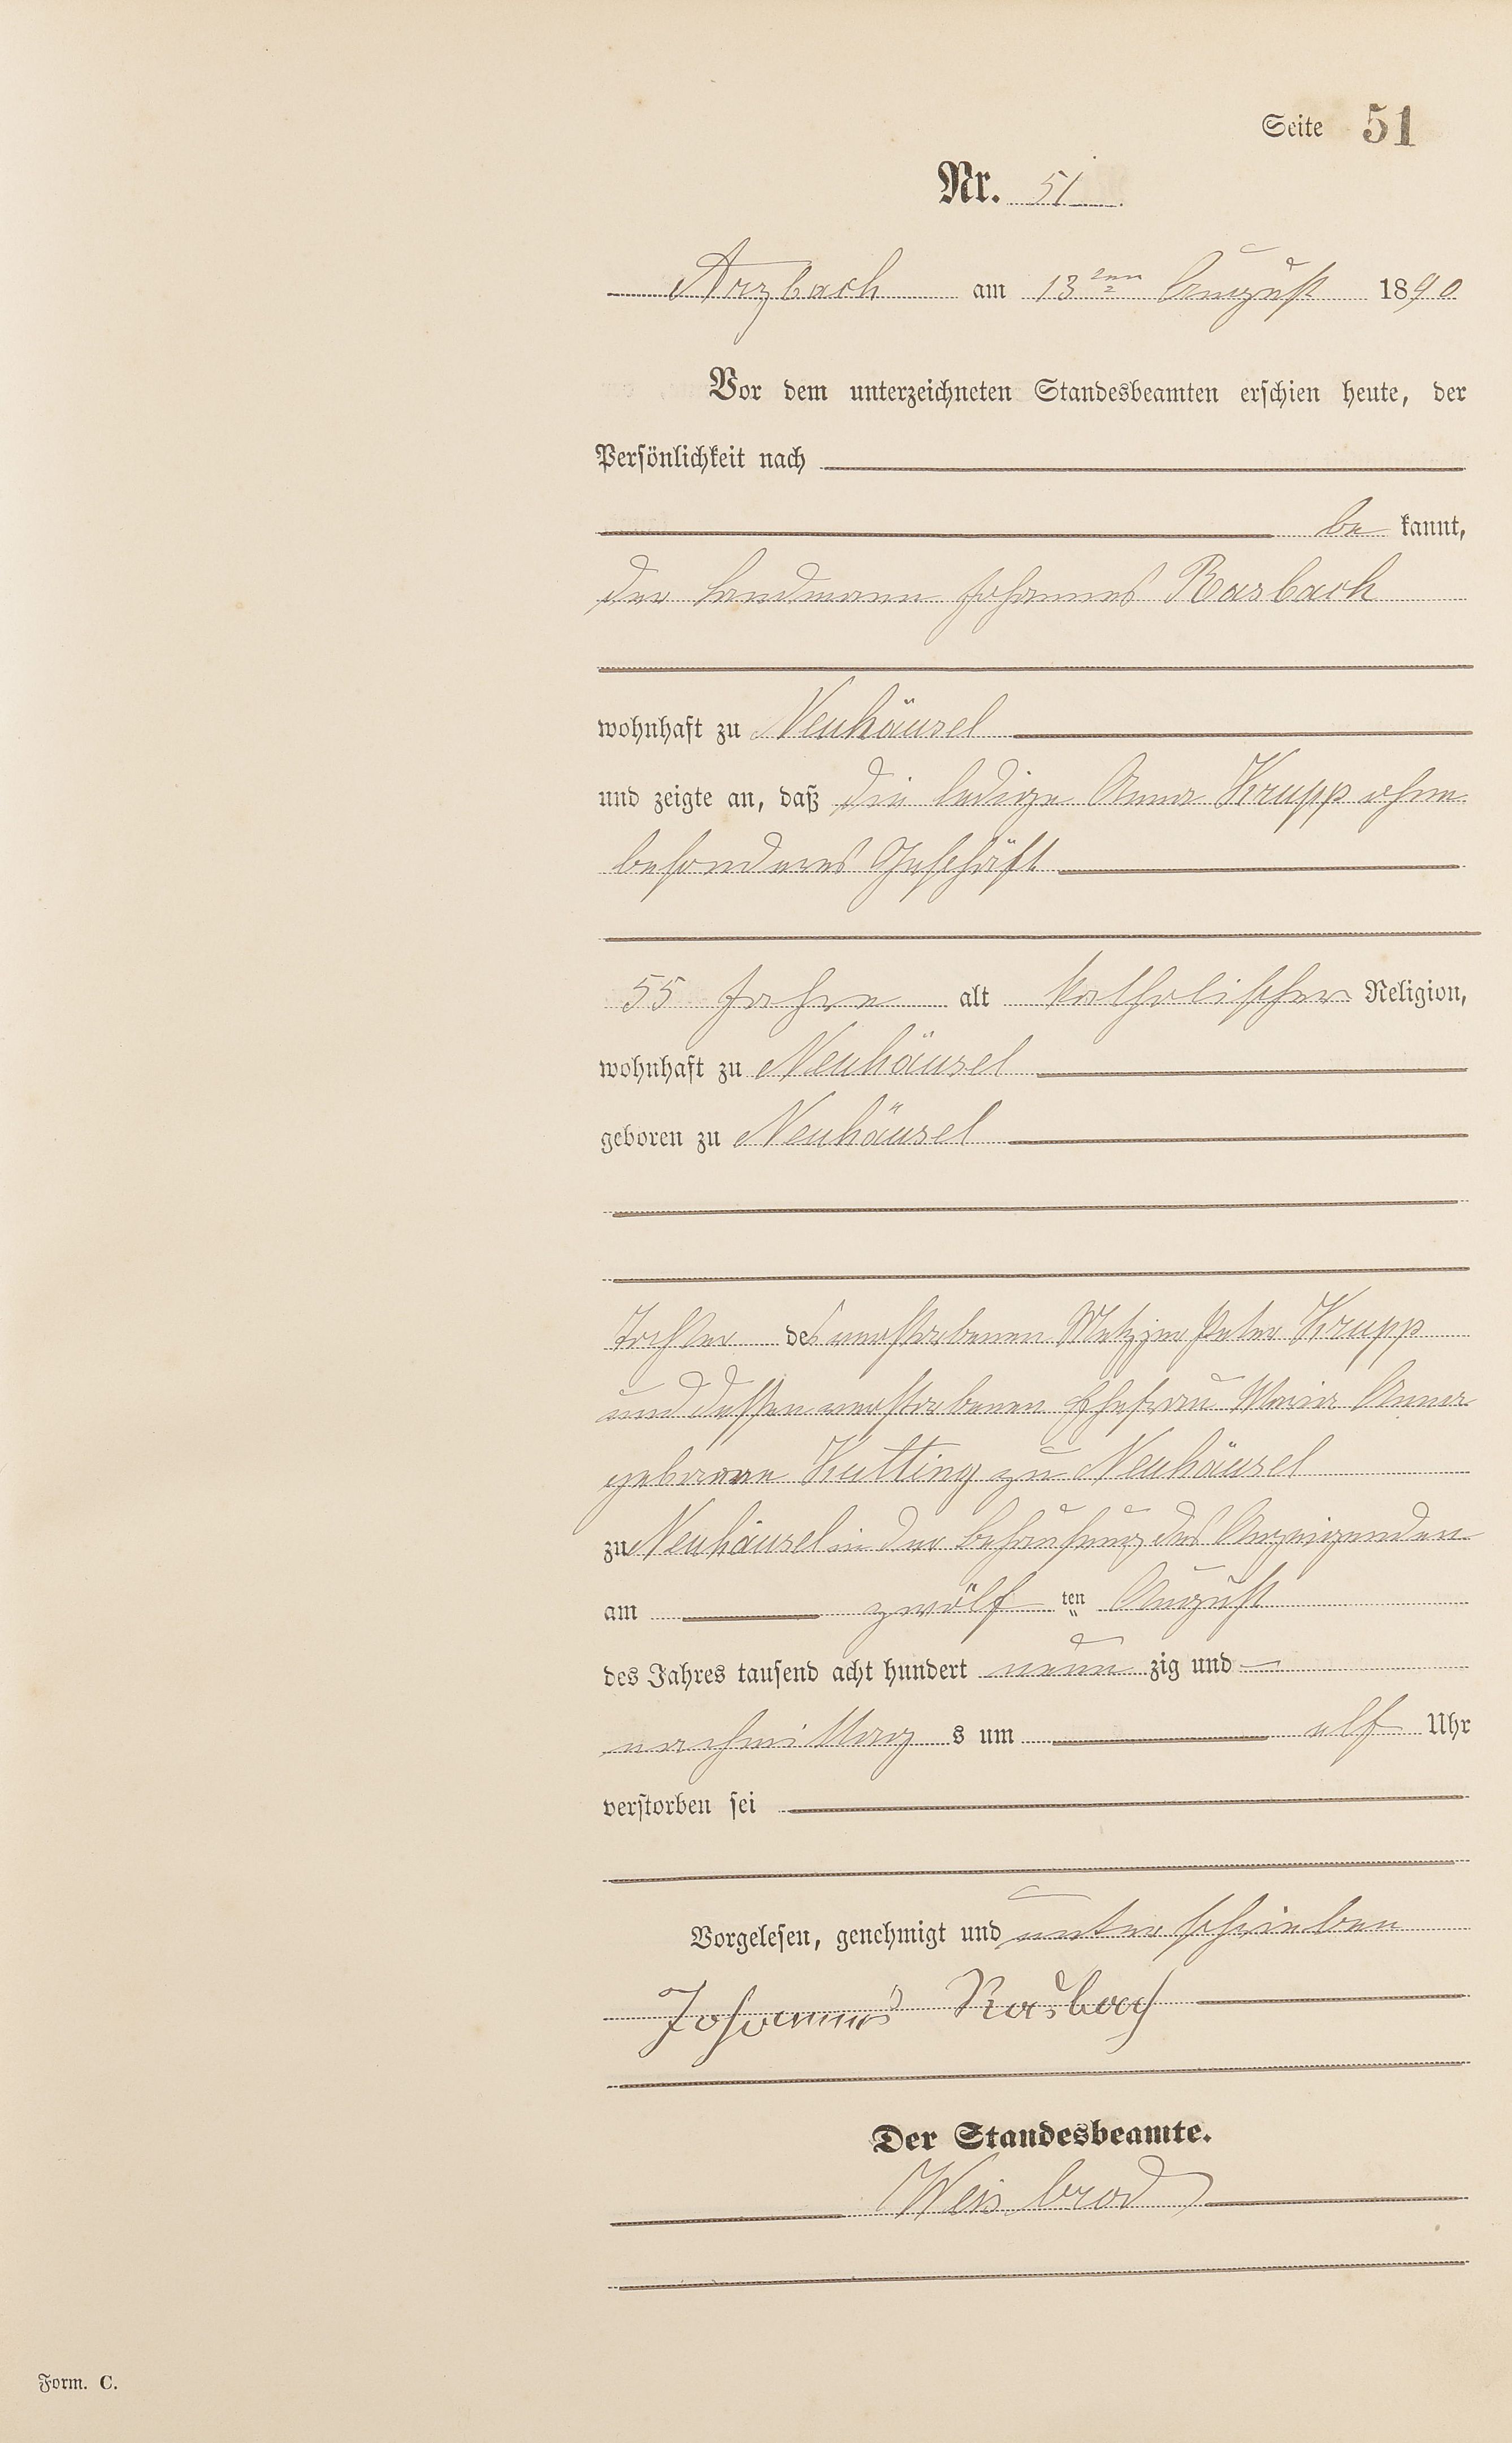 Seite 51
Nr. 51
Arzbach am 13ten August 1890
Vor dem unterzeichneten Standesbeamten erschien heute, der
Persönlichkeit nach
be kannt,
der Landmann Johannes Rasbach
wohnhaft zu Neuhäusel
und zeigte an, daß die ledige Anna Krupp ohne
besonderes Geschäft
55 Jahre alt katholischer Religion,
wohnhaft zu Neuhäusel
geboren zu Neuhäusel
Tochter des verstorbenen Metzger Peter Krupp
und dessen verstorbenen Ehefrau Maria Anna
geborene Kutting zu Neuhäusel
zu Neuhäusel in der Behausung des Anzeigenden
am zwölf ten August
des Jahres tausend acht hundert neun zig und
nachmittag s um elf Uhr
verstorben sei
Vorgelesen, genehmigt und unterschrieben
Johannes Rasbach
Der Standesbeamte.
Weisbrod
Form. C.